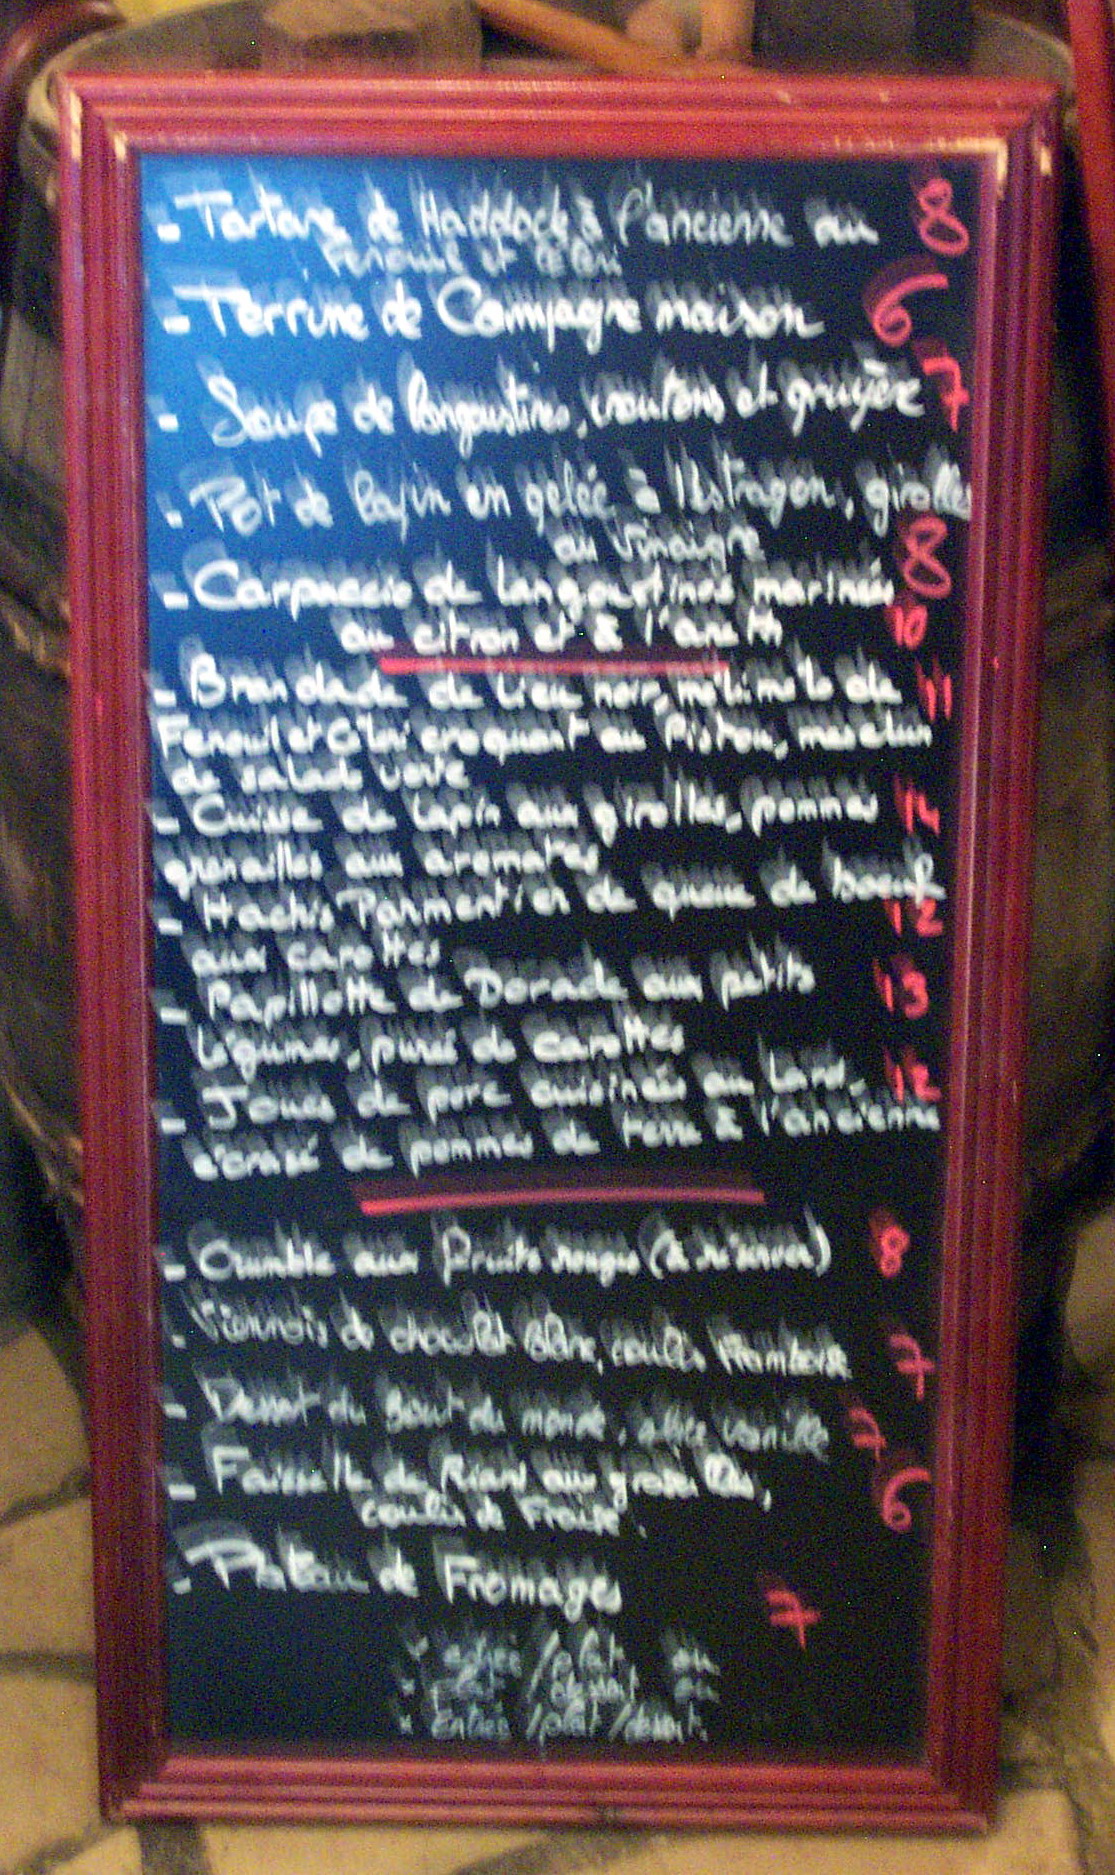 - Tartare de Haddock à l'ancienne au 8
Fenouil et Céleri
- Terrine de Campagne maison 6
- Soupe de langoustines, croutons et gruyère 7
- Pot de lapin en gelée à l'estragon, girolles
au vinaigre 8
- Carpaccio de langoustines marinées
au citron et à l'aneth 10
- Brandade de lieu noir, méli mélo de 11
Fenouil et Céleri croquant au Pistou, mesclun
de salade verte
- Cuisse de lapin aux girolles, pommes 14
grenailles aux aromates
- Hachis Parmentier de queue de boeuf
aux carottes 12
- Papillotte de Dorade aux petits 13
légumes, purée de carottes
- Joues de porc cuisinées au lard, 12
écrasé de pommes de terre à l'ancienne
- Crumble aux Fruits rouges (à réserver) 8
- Viennois de chocolat Blanc, coulis Framboise 7
- Dessert du Bout du monde, glace vanille 7
- Faisselle de Rians aux groseilles, 6
coulis de Fraise.
- Plateau de Fromages 7
x entrée / plat ou
x Plat / dessert ou
x Entrée / plat / dessert.